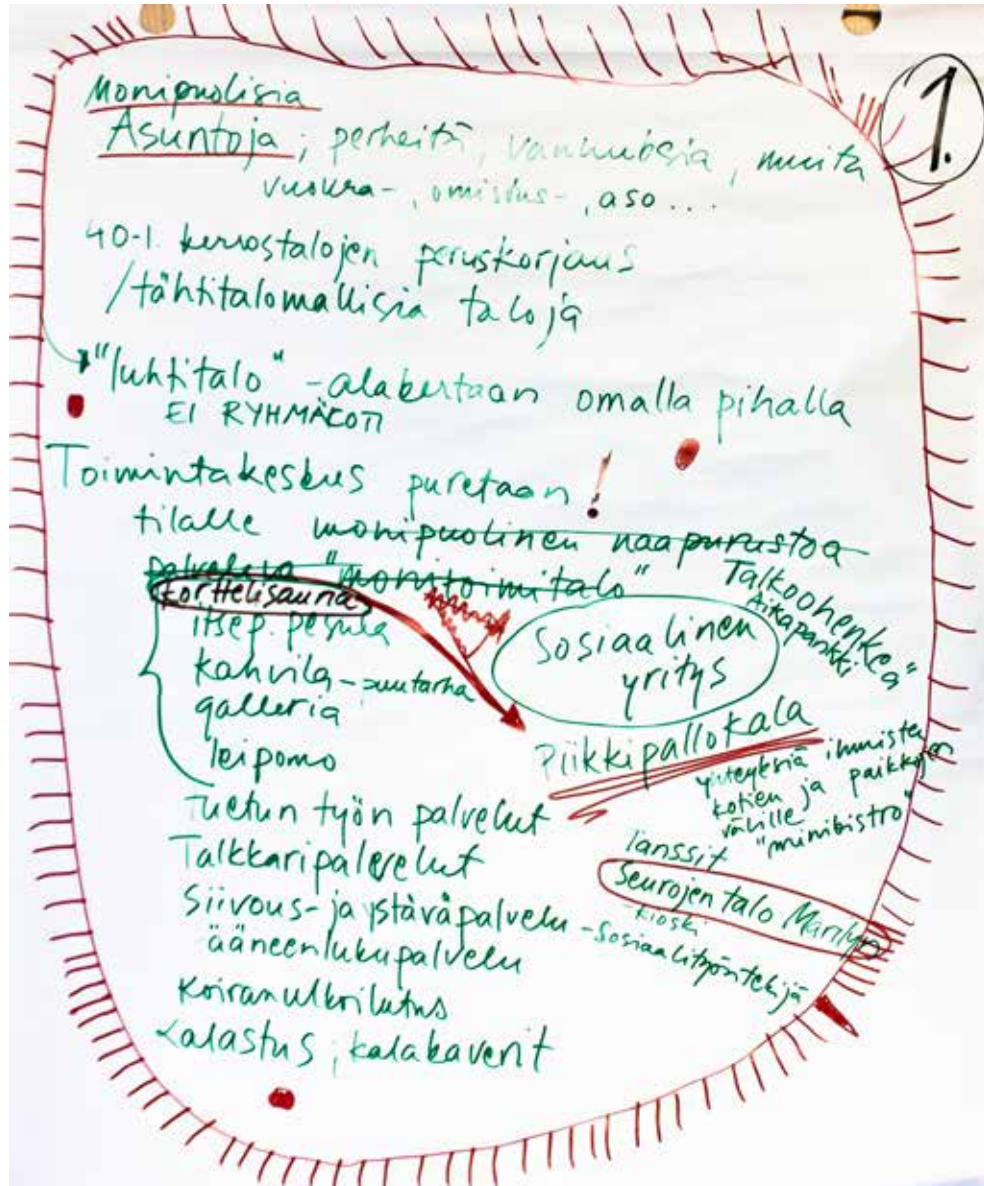 1.
Monipuolisia
Asuntoja ; perheitä, vanhuksia, muita
vuokra-, omistus-, aso...
40-l. kerrostalojen peruskorjaus
/tähtitalomallisia taloja
"luhtitalo" - alakertaan omalla pihalla
EI RYHMÄKOTI
Toimintakeskus puretaan !
tilalle monipuolinen naapurustoa
palveleva "monitoimitalo"
korttelisauna
itsep. pesula
kahvila - puutarha
galleria
leipomo
Talkoohenkeä"
Aikapankki
Sosiaalinen
yritys
Piikkipallokala
yhteyksiä ihmisten
kotien ja paikkojen
välille
"minibistro"
Tuetun työn palvelut
Talkkaripalvelut
Siivous- ja ystäväpalvelu - Sosiaalityöntekijä
ääneenlukupalvelu
Koiranulkoilutus
Kalastus ; kalakaverit
Tanssit
Seurojen talo Marilyn
-kioski